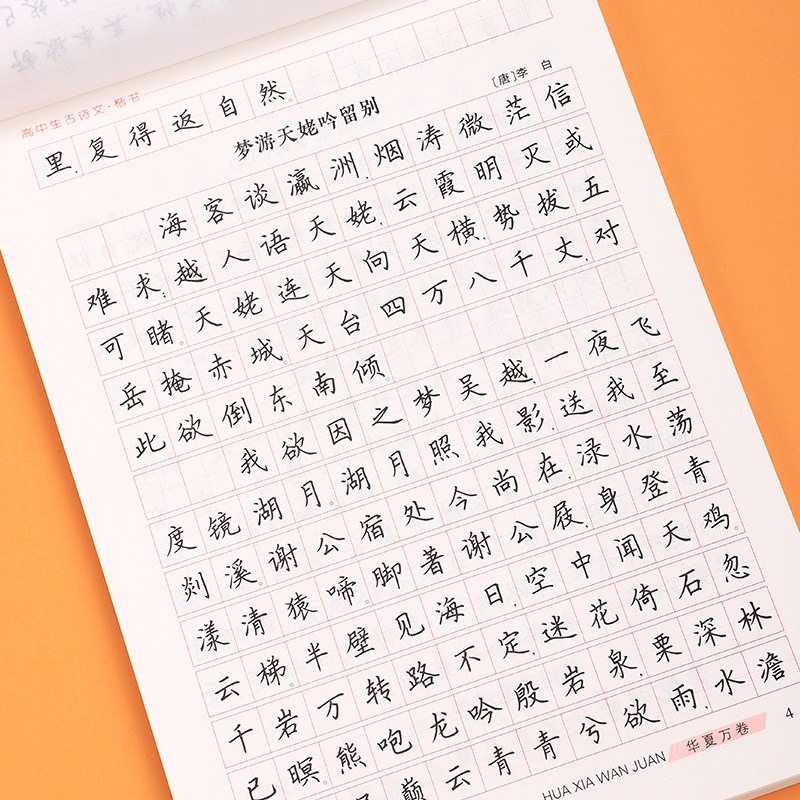 高中生古诗文·楷书
里,复得返自然。
梦游天姥吟留别
[唐]李 白
海客谈瀛洲,烟涛微茫信
难求;越人语天姥,云霞明灭或
可睹。天姥连天向天横,势拔五
岳掩赤城。天台四万八千丈,对
此欲倒东南倾。
我欲因之梦吴越,一夜飞
度镜湖月。湖月照我影,送我至
剡溪。谢公宿处今尚在,渌水荡
漾清猿啼。脚著谢公屐,身登青
云梯。半壁见海日,空中闻天鸡。
千岩万转路不定,迷花倚石忽
已暝。熊咆龙吟殷岩泉,栗深林
巅云青青兮欲雨,水澹
HUA XIA WAN JUAN 华夏万卷 4